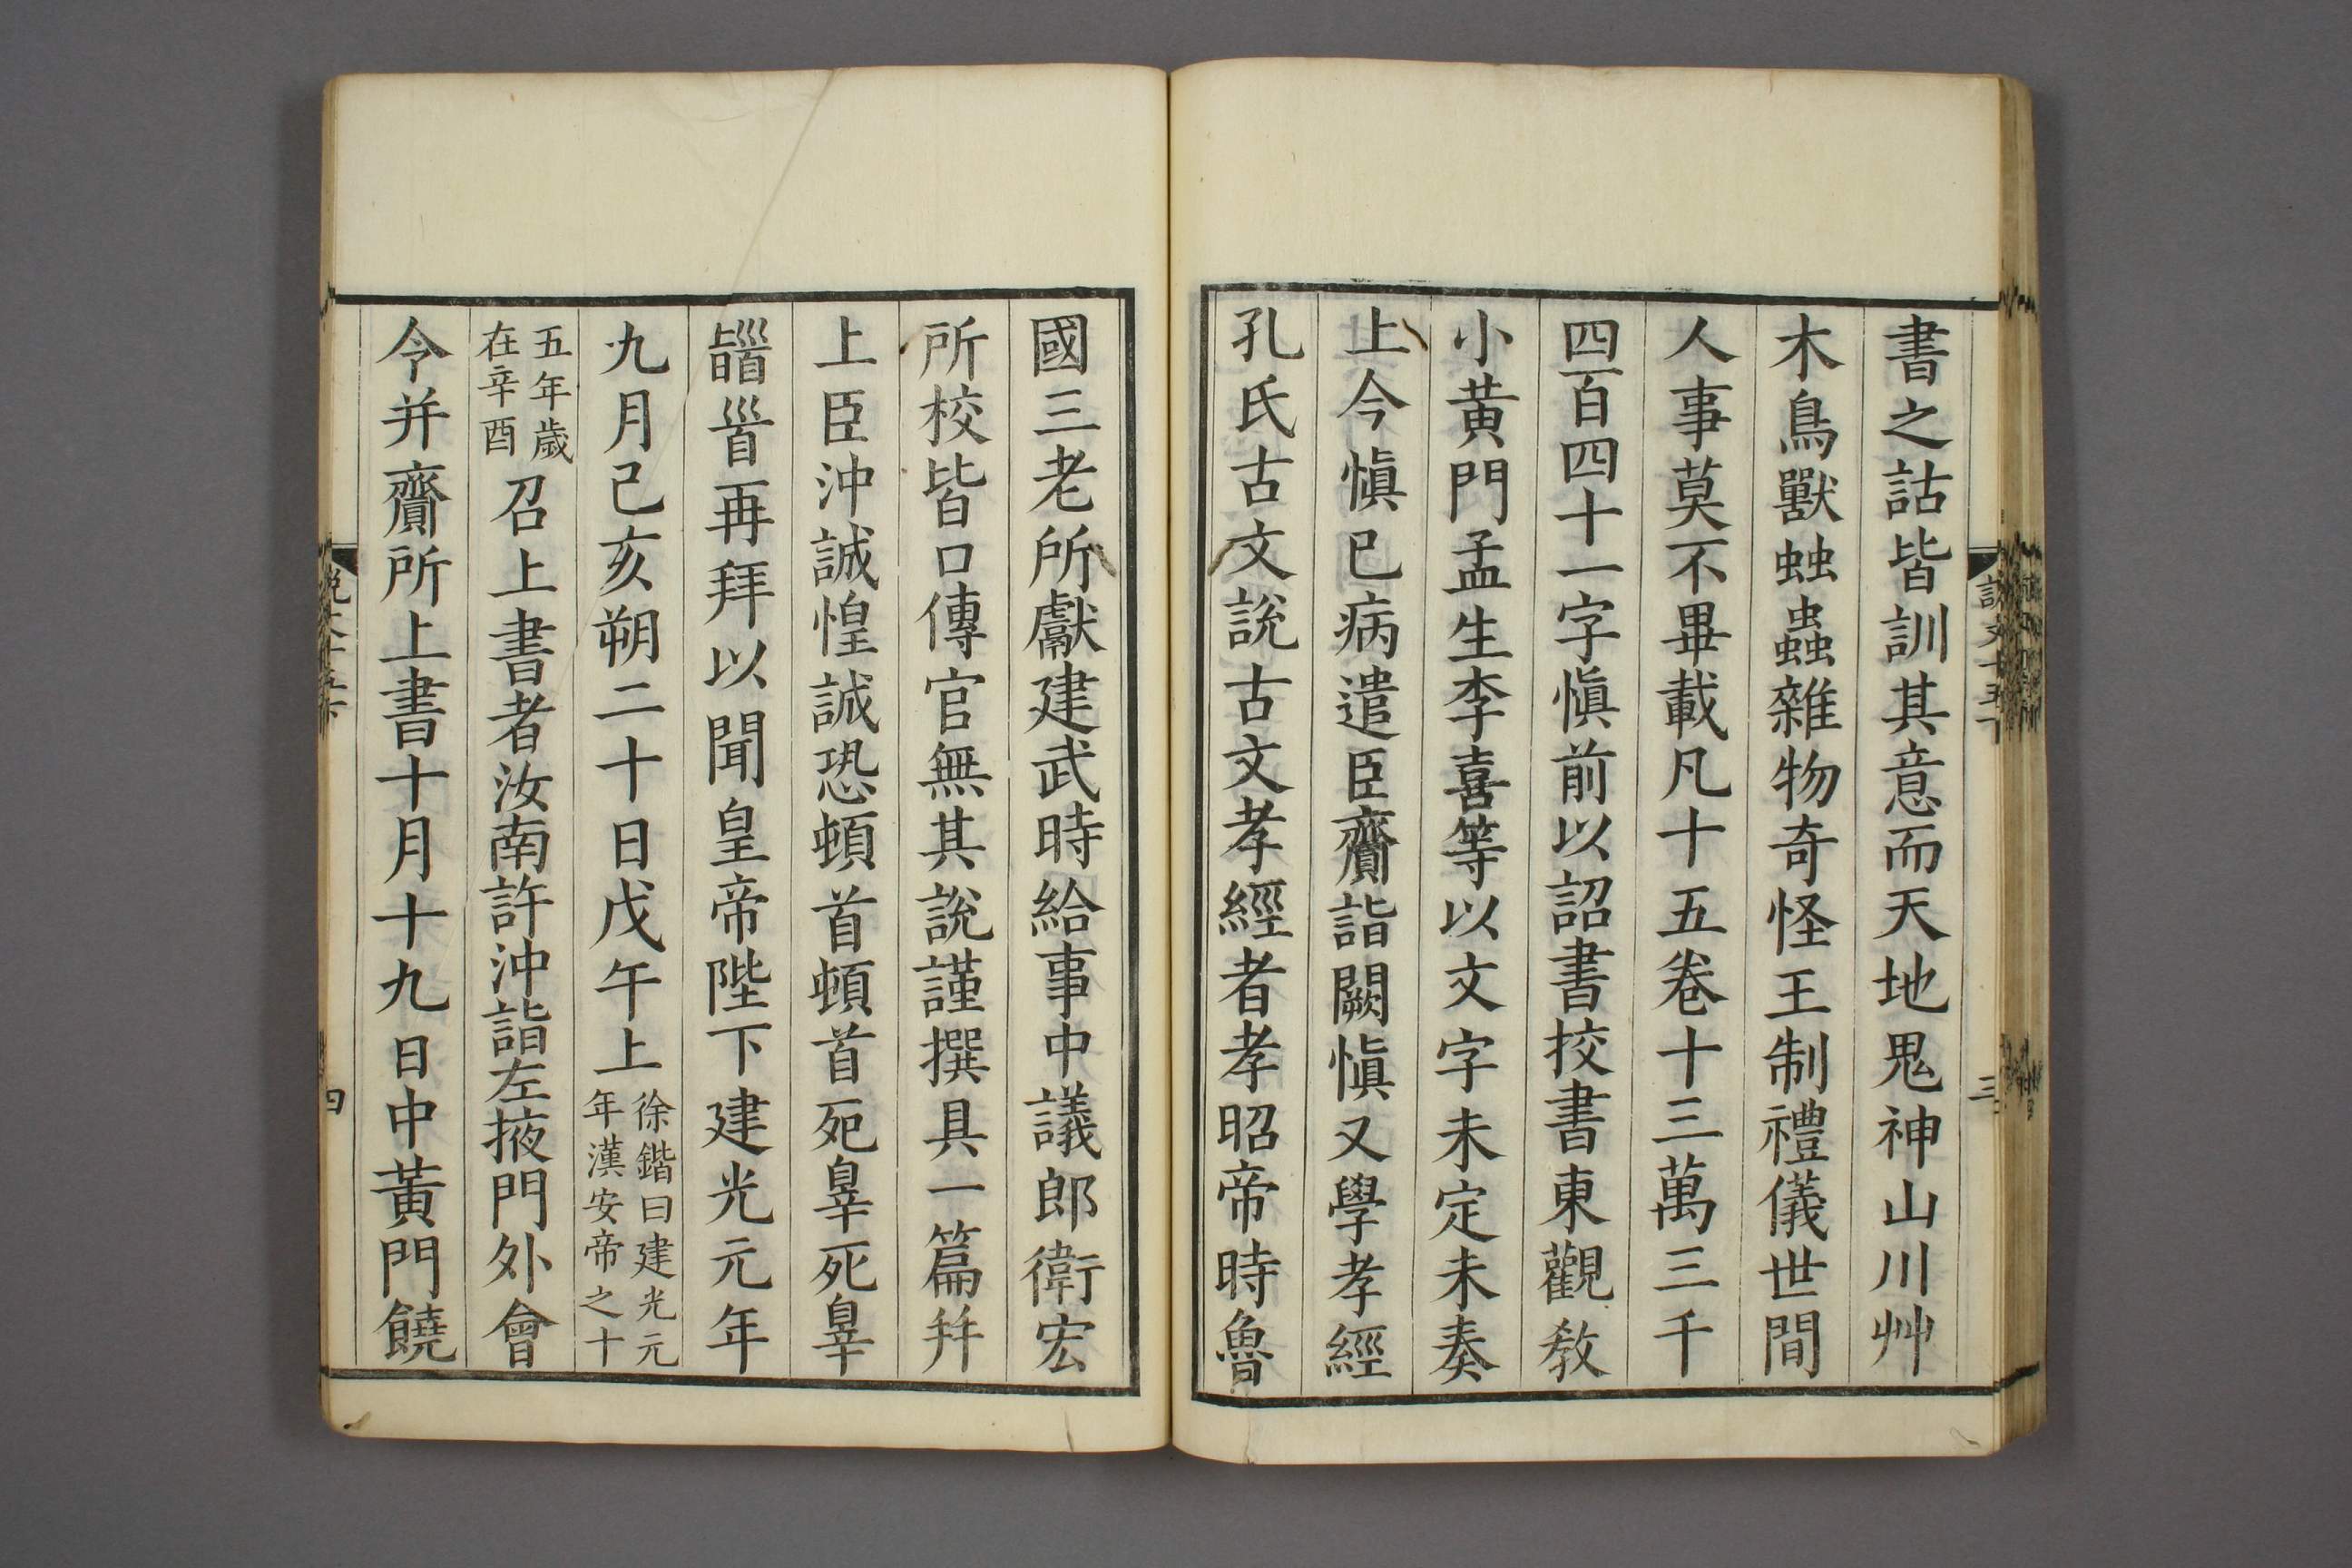 書之詁皆訓其意而天地鬼神山川艸
木鳥獸䖵蟲雜物奇怪王制禮儀世間
人事莫不畢載凡十五卷十三萬三千
四百四十一字愼前以詔書挍書東觀敎
小黃門孟生李喜等以文字未定未奏
上今愼已病遣臣齎詣闕愼又學孝經
孔氏古文說古文孝經者孝昭帝時魯
國三老所獻建武時給事中議郎衛宏
所校皆口傳官無其說謹撰具一篇幷
上臣沖誠惶誠恐頓首頓首死辠死辠
䭫𩠐再拜以聞皇帝陛下建光元年
九月己亥朔二十日戊午上徐鍇曰建光元
年漢安帝之十
五年歲
在辛酉召上書者汝南許沖詣左掖門外會
令并齎所上書十月十九日中黃門饒
說文十五下
三
四